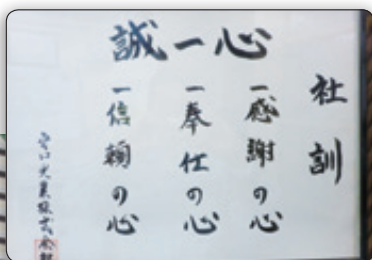 誠一心
社訓
一感謝の心
一奉仕の心
一信頼の心
株式会社